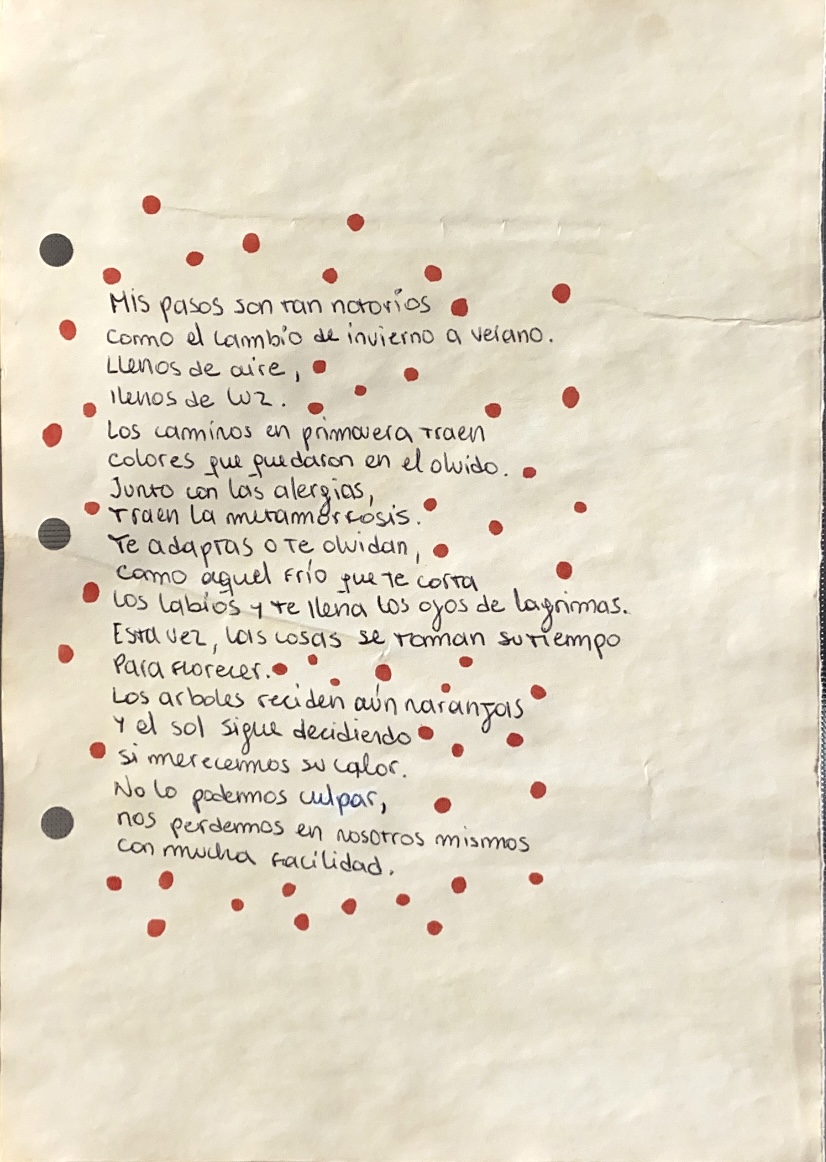 Mis pasos son tan notorios
como el cambio de invierno a verano.
Llenos de aire,
llenos de luz.
Los caminos en primavera traen
colores que quedaron en el olvido.
Junto con las alergias,
traen la metamorfosis.
Te adaptas o te olvidan,
como aquel frío que te corta
los labios y te llena los ojos de lagrimas.
Esta vez, las cosas se toman su tiempo
Para florecer.
Los arboles reciden aún naranjas
y el sol sigue decidiendo
si merecemos su calor.
No lo podemos culpar,
nos perdemos en nosotros mismos
con mucha facilidad.